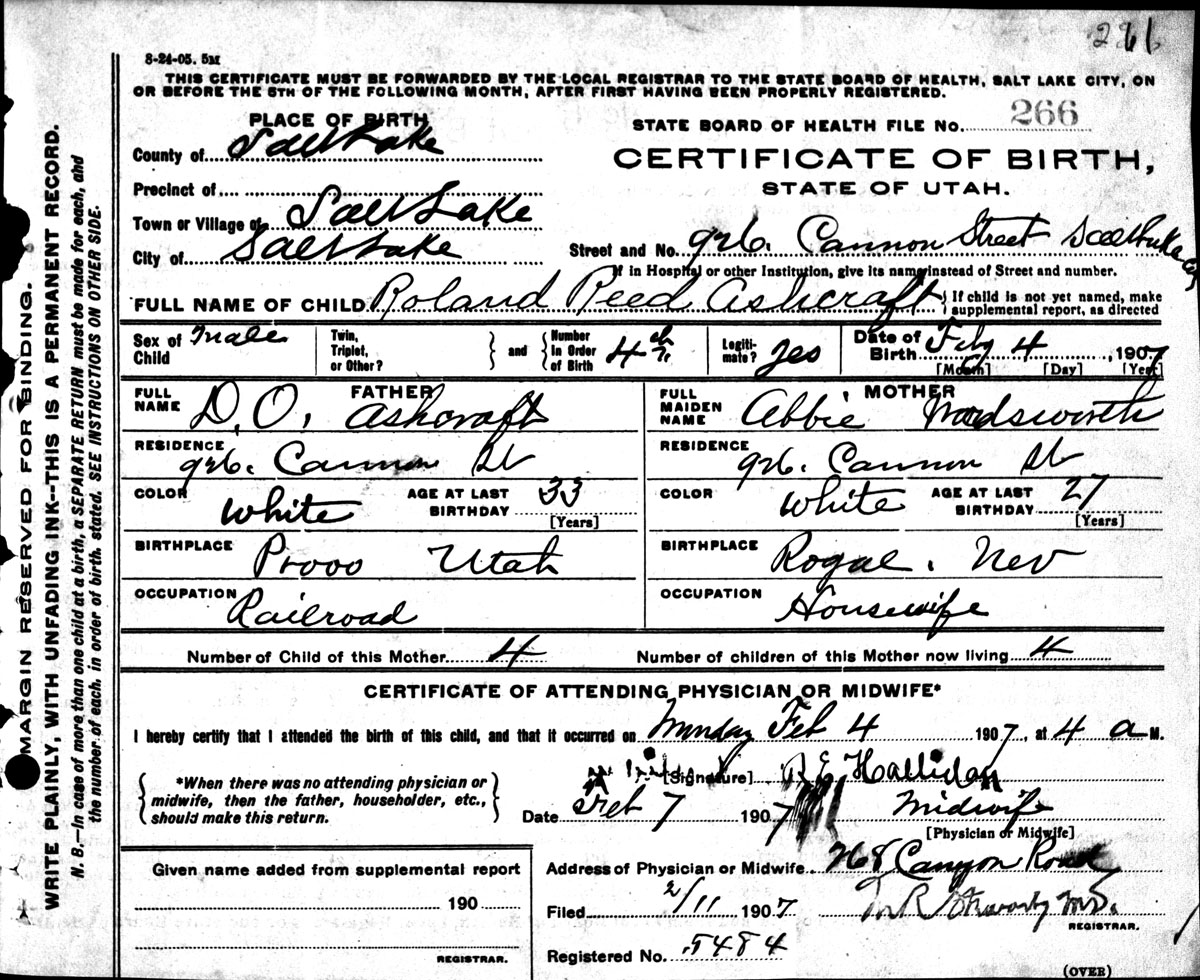 8-24-05. 5M
THIS CERTIFICATE MUST BE FORWARDED BY THE LOCAL REGISTRAR TO THE STATE BOARD OF HEALTH, SALT LAKE CITY, ON
OR BEFORE THE 5TH OF THE FOLLOWING MONTH, AFTER FIRST HAVING BEEN PROPERLY REGISTERED.
PLACE OF BIRTH
County of Salt Lake
Precinct of
Town or Village of Salt Lake
City of Salt Lake
STATE BOARD OF HEALTH FILE No. 266
CERTIFICATE OF BIRTH,
STATE OF UTAH.
Street and No. 926. Cannon Street Salt Lake
If in Hospital or other Institution, give its name instead of Street and number.
FULL NAME OF CHILD Roland Reed Ashcraft } If child is not yet named, make supplemental report, as directed
Sex of Child Male Twin, Triplet, or Other? } and { Number in Order of Birth 4th Legitimate? yes Date of Birth Feb 4, 1907
[Month] [Day] [Year]
FATHER
FULL NAME D. O. Ashcraft
RESIDENCE 926. Cannon St
COLOR White AGE AT LAST BIRTHDAY 33
[Years]
BIRTHPLACE Provo Utah
OCCUPATION Railroad
MOTHER
FULL MAIDEN NAME Abbie Wadsworth
RESIDENCE 926. Cannon St
COLOR White AGE AT LAST BIRTHDAY 27
[Years]
BIRTHPLACE Nev
OCCUPATION Housewife
Number of Child of this Mother 4 Number of children of this Mother now living 4
CERTIFICATE OF ATTENDING PHYSICIAN OR MIDWIFE*
I hereby certify that I attended the birth of this child, and that it occurred on Monday Feb 4 1907, at 4 a M.
{ *When there was no attending physician or
midwife, then the father, householder, etc.,
should make this return. }
[Signature] R E Halliday
Date Feb 7 1907 Midwife
[Physician or Midwife]
Address of Physician or Midwife 268 Canyon Road
Filed 2/11 1907 M.D.
REGISTRAR.
Registered No. 5484
(OVER)
Given name added from supplemental report
190
REGISTRAR.
MARGIN RESERVED FOR BINDING.
WRITE PLAINLY, WITH UNFADING INK--THIS IS A PERMANENT RECORD.
N. B.—In case of more than one child at a birth, a SEPARATE RETURN must be made for each, and
the number of each, in order of birth, stated. SEE INSTRUCTIONS ON OTHER SIDE.